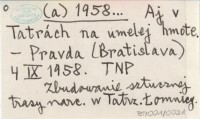 (a) 1958... Aj v
Tatrách na umelej hmote.
– Pravda (Bratislava)
4 IX 1958. TNP
Zbudowanie sztucznej
trasy narc. w Tatrz. Łomnicy.